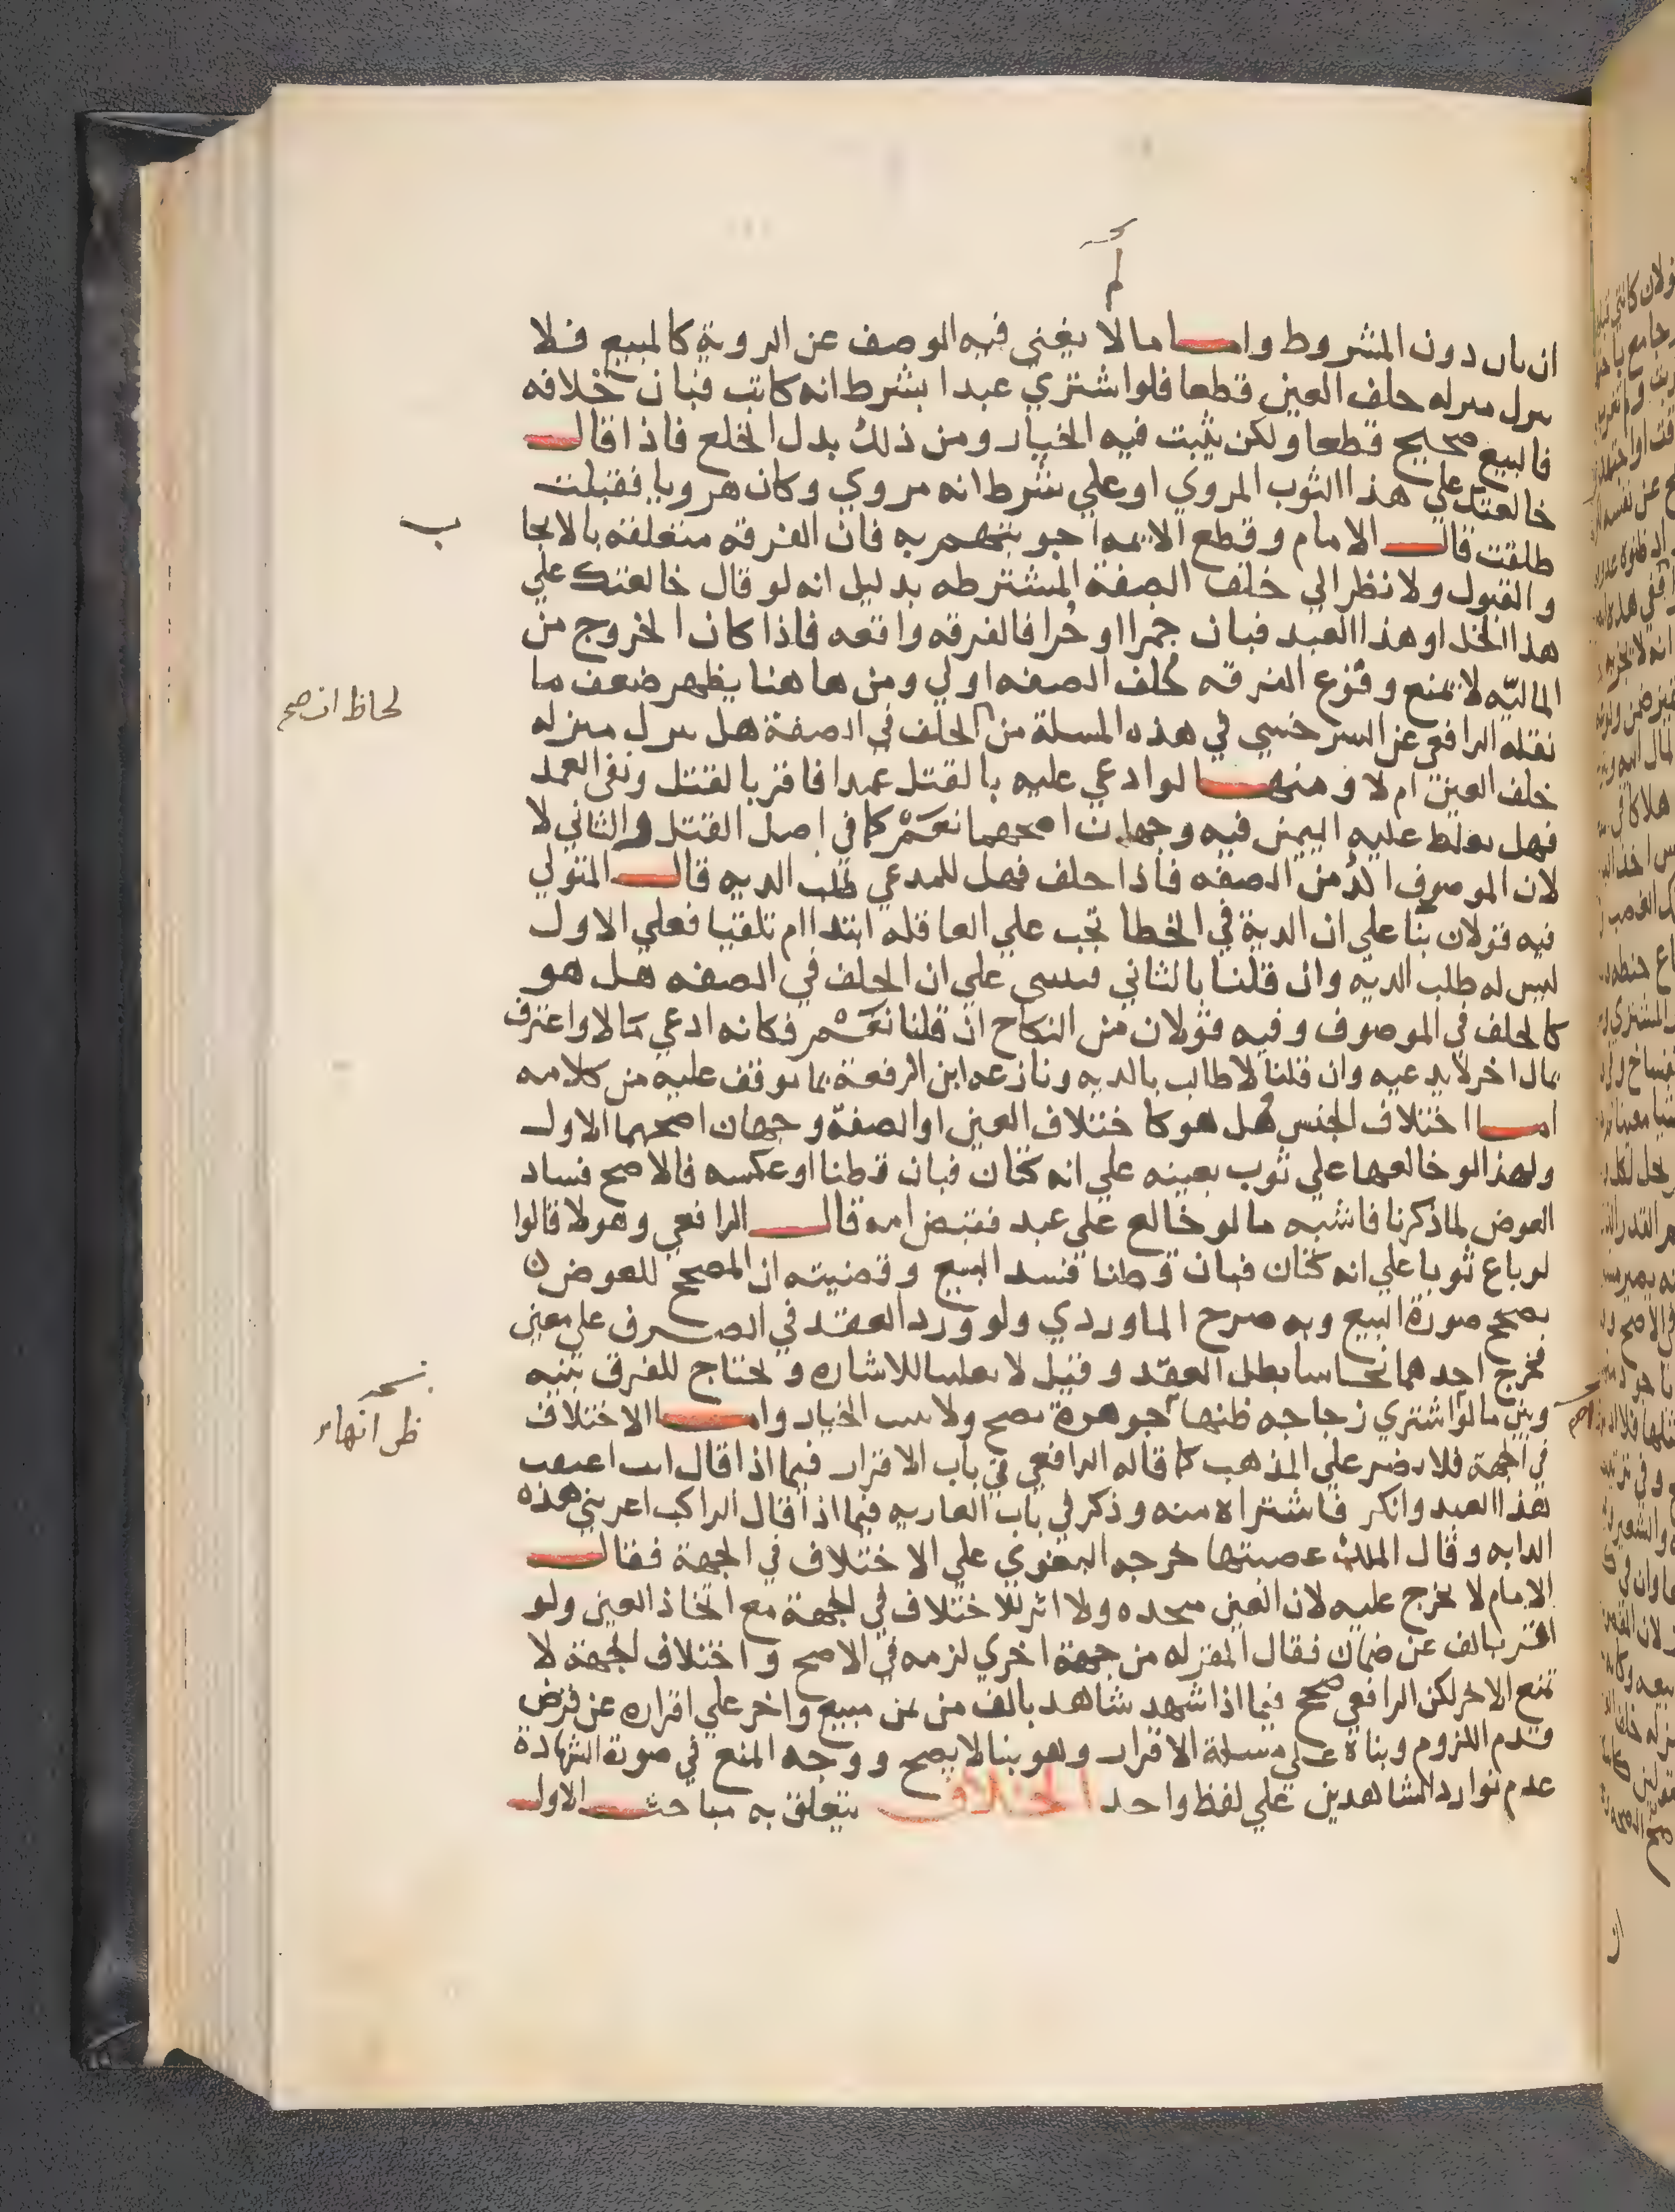 ان بان دون المشروط واما ما لا يغني فيه الوصف عن الروية كالمبيع فلا
ينزل منزله خلف العين قطعا فلو اشتري عبدا بشرط انه كاتب فبان خلافه
فالبيع صحيح قطعا ولكن يثبت فيه الخيار ومن ذلك بدل الخلع فاذا قال
خالعتك علي هذا الثوب المروي او علي شرط انه مروي وكان هرويا فقبلت
طلقت قال الامام وقطع الايمه اجوبتهم به فان الفرقه متعلقه بالايجا
ب
والقبول ولا نظر الي خلف الصفة المشترطه بدليل انه لو قال خالعتك علي
هذا الخل او هذا العبد فبان خمرا او حُرا فالفرقه واقعه فاذا كان الخروج من
الماليّه لا يمنع وقوع الفرقه فخلف الصفه اولي ومن هاهنا يظهر ضعف ما
نقله الرافعي عن السرخسي في هذه المسلة من الخلف في الصفة هل ينزل منزله
خلف العين ام لا ومنها لو ادعي عليه بالقتل عمدا فاقر بالقتل ونفي العمد
فهل يغلظ عليه اليمين فيه وجهان اصحهما نعم كما في اصل القتل والثاني لا
لان الموصوف اكد من الصفه فاذا حلف فهل للمدعي طلب الديه قال المتولي
فيه قولان بنا علي ان الدية في الخطا تجب علي العاقله ابتدا ام تلقيا فعلي الاول
ليس له طلب الديه وان قلنا بالثاني فينبني علي ان الخلف في الصفه هل هو
كالخلف في الموصوف وفيه قولان من النكاح ان قلنا نعم فكانه ادعي مالا واعترف
بمال اخر لا يدعيه وان قلنا لا طالب بالديه ونازعه ابن الرفعة بما يوقف عليه من كلامه
اما اختلاف الجنس هل هو كاختلاف العين او الصفة وجهان اصحهما الاول
ولهذا لو خالعها علي ثوب بعينه علي انه كتان فبان قطنا او عكسه فالاصح فساد
العوض لما ذكرنا فاشبه ما لو خالع علي عبد فقبض امه قال الرافعي وهولا قالوا
لو باع ثوبا علي انه كتان فبان قطنا فسد البيع وقضيته ان المصحح للعوض
يصحح صورة البيع وبه صرح الماوردي ولو ورد العقد في الصرف علي معين
فخرج احدهما نحاسا بطل العقد وقيل لا تغليبا للاشاره ويحتاج للفرق بينه
وبين ما لو اشتري زجاجه ظنها جوهرة يصح ولا يثبت الخيار واما الاختلاف
في الجهة فلا يضر علي المذهب كما قاله الرافعي في باب الاقرار فيما اذا قال انت اعتقت
هذا العبد وانكر فاشتراه منه وذكر في باب العاريه فيما اذا قال الراكب اعرتني هذه
الدابه وقال الملك غصبتها خرجه البغوي علي الاختلاف في الجهة فقال
الامام لا يخرج عليه لان العين متحده ولا اثر للاختلاف في الجهة مع اتخاذ العين ولو
اقر بالف عن ضمان فقال المقر له من جهة اخري لزمه في الاصح واختلاف الجهة لا
تمنع الاخر لكن الرافعي صحح فيما اذا شهد شاهد بالف من ثمن مبيع واخر علي اقراره عن قرض
وعدم اللزوم وبناه علي مسلة الاقرار وهو بنا لا يصح ووجه المنع في صورة الشهادة
عدم توارد الشاهدين علي لفظ واحد الخلاف يتعلق به مباحث الاول